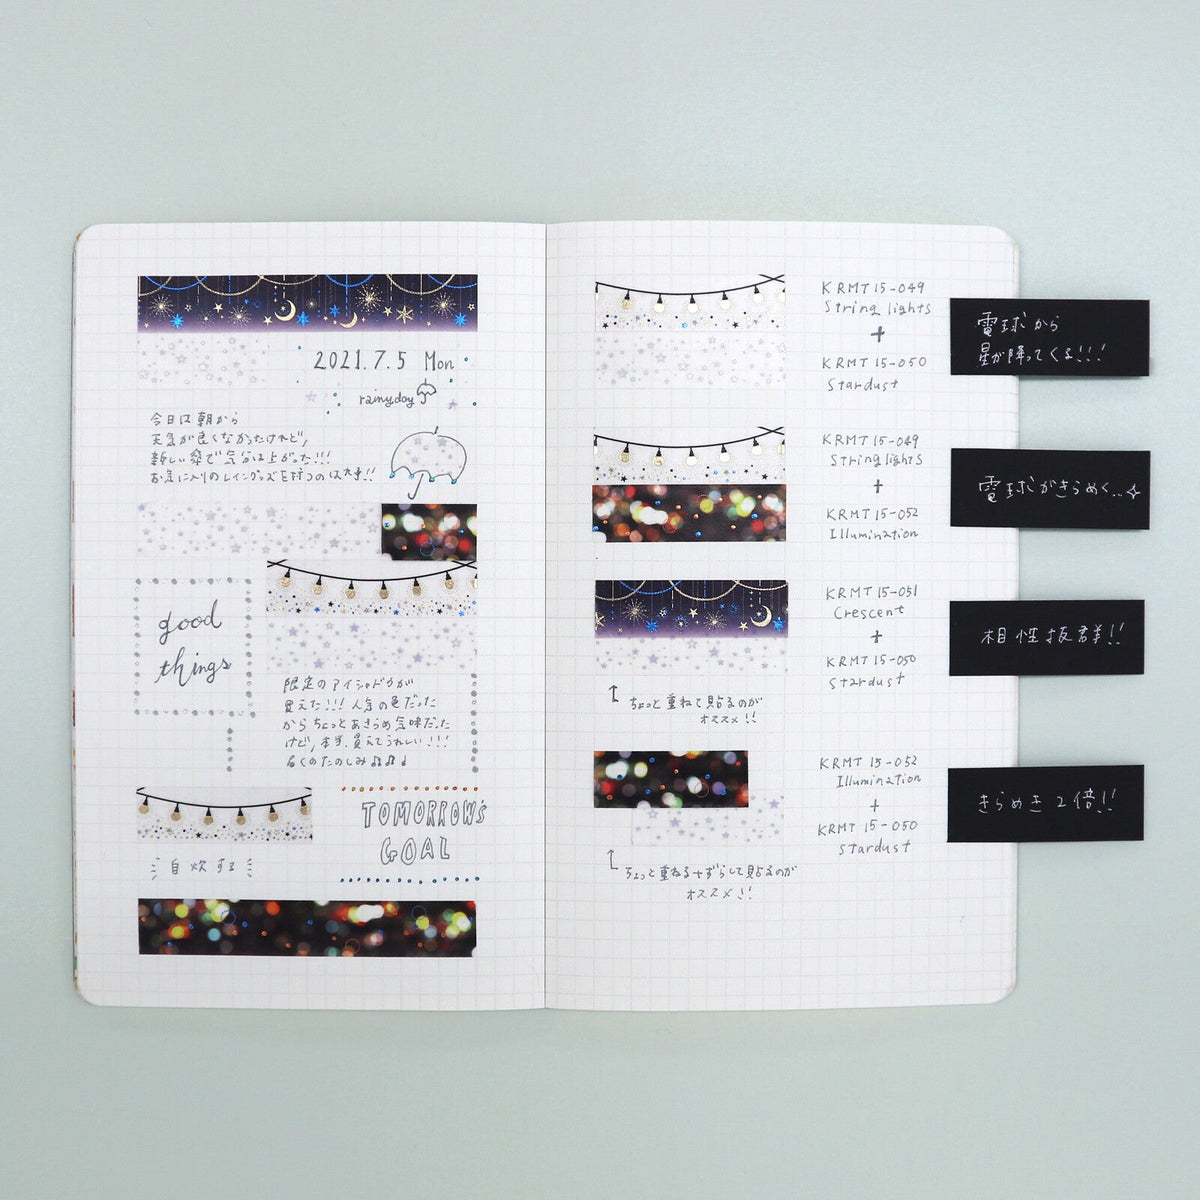 2021.7.5 Mon
rainyday
今日は朝から
天気が良くなかったけれど,
新しい傘で気分は上がった!!!
お気に入りのレイングッズを持つのは大事!!
good
things
限定のアイシャドウが
買えた!!! 人気の色だった
からちょっとあきらめ気味だった
けど, 本当, 買えてうれしい!!!
るくのたのしみ♫♫♩
TOMORROW's
GOAL
自炊する
KRMT15-049
String lights
+
KRMT 15-050
Stardust
電球から
星が降ってくる!!!
KRMT15-049
String lights
+
KRMT 15-052
Illumination
電球がきらめく..✧
KRMT 15-051
Crescent
+
KRMT 15-050
Stardust
相性抜群!!
ちょっと重ねて貼るのが
オススメ!!
KRMT 15-052
Illumination
+
KRMT 15-050
Stardust
きらめき2倍!!
ちょっと重ねる+ずらして貼るのが
オススメ!!